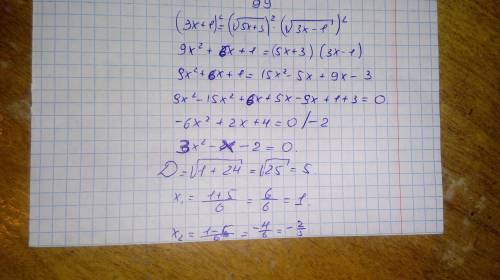 99
(3x+1)² = (√5x+3)² (√3x-1)²
9x² + 6x + 1 = (5x+3) (3x-1)
9x² + 6x + 1 = 15x² - 5x + 9x - 3
9x² - 15x² + 6x + 5x - 9x + 1 + 3 = 0.
-6x² + 2x + 4 = 0 / -2
3x² - x - 2 = 0.
D = √1 + 24 = √25 = 5.
x₁ = 1+5/6 = 6/6 = 1.
x₂ = 1-5/6 = -4/6 = -2/3